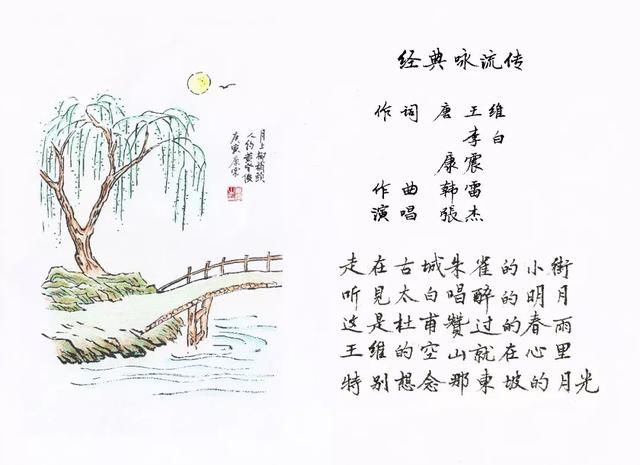 经典咏流传
作词 唐 王维
李白
康震
作曲 韩雷
演唱 張杰
走在古城朱雀的小街
听見太白唱醉的明月
这是杜甫赞过的春雨
王维的空山就在心里
特别想念那東坡的月光
月上柳梢頭
人约黄昏後
庚寅